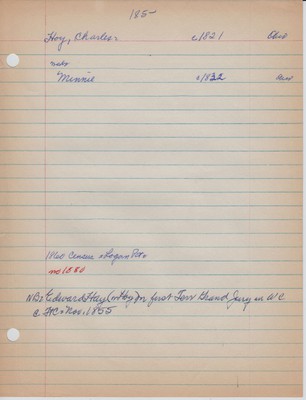 185-
Hoy, Charles c1821 Ohio
Minnie c1832
1860 Census
no 1880
NB: Edward Hay (or Hoy) on first Terr Grand Jury in WC
@ FtC Nov. 1855